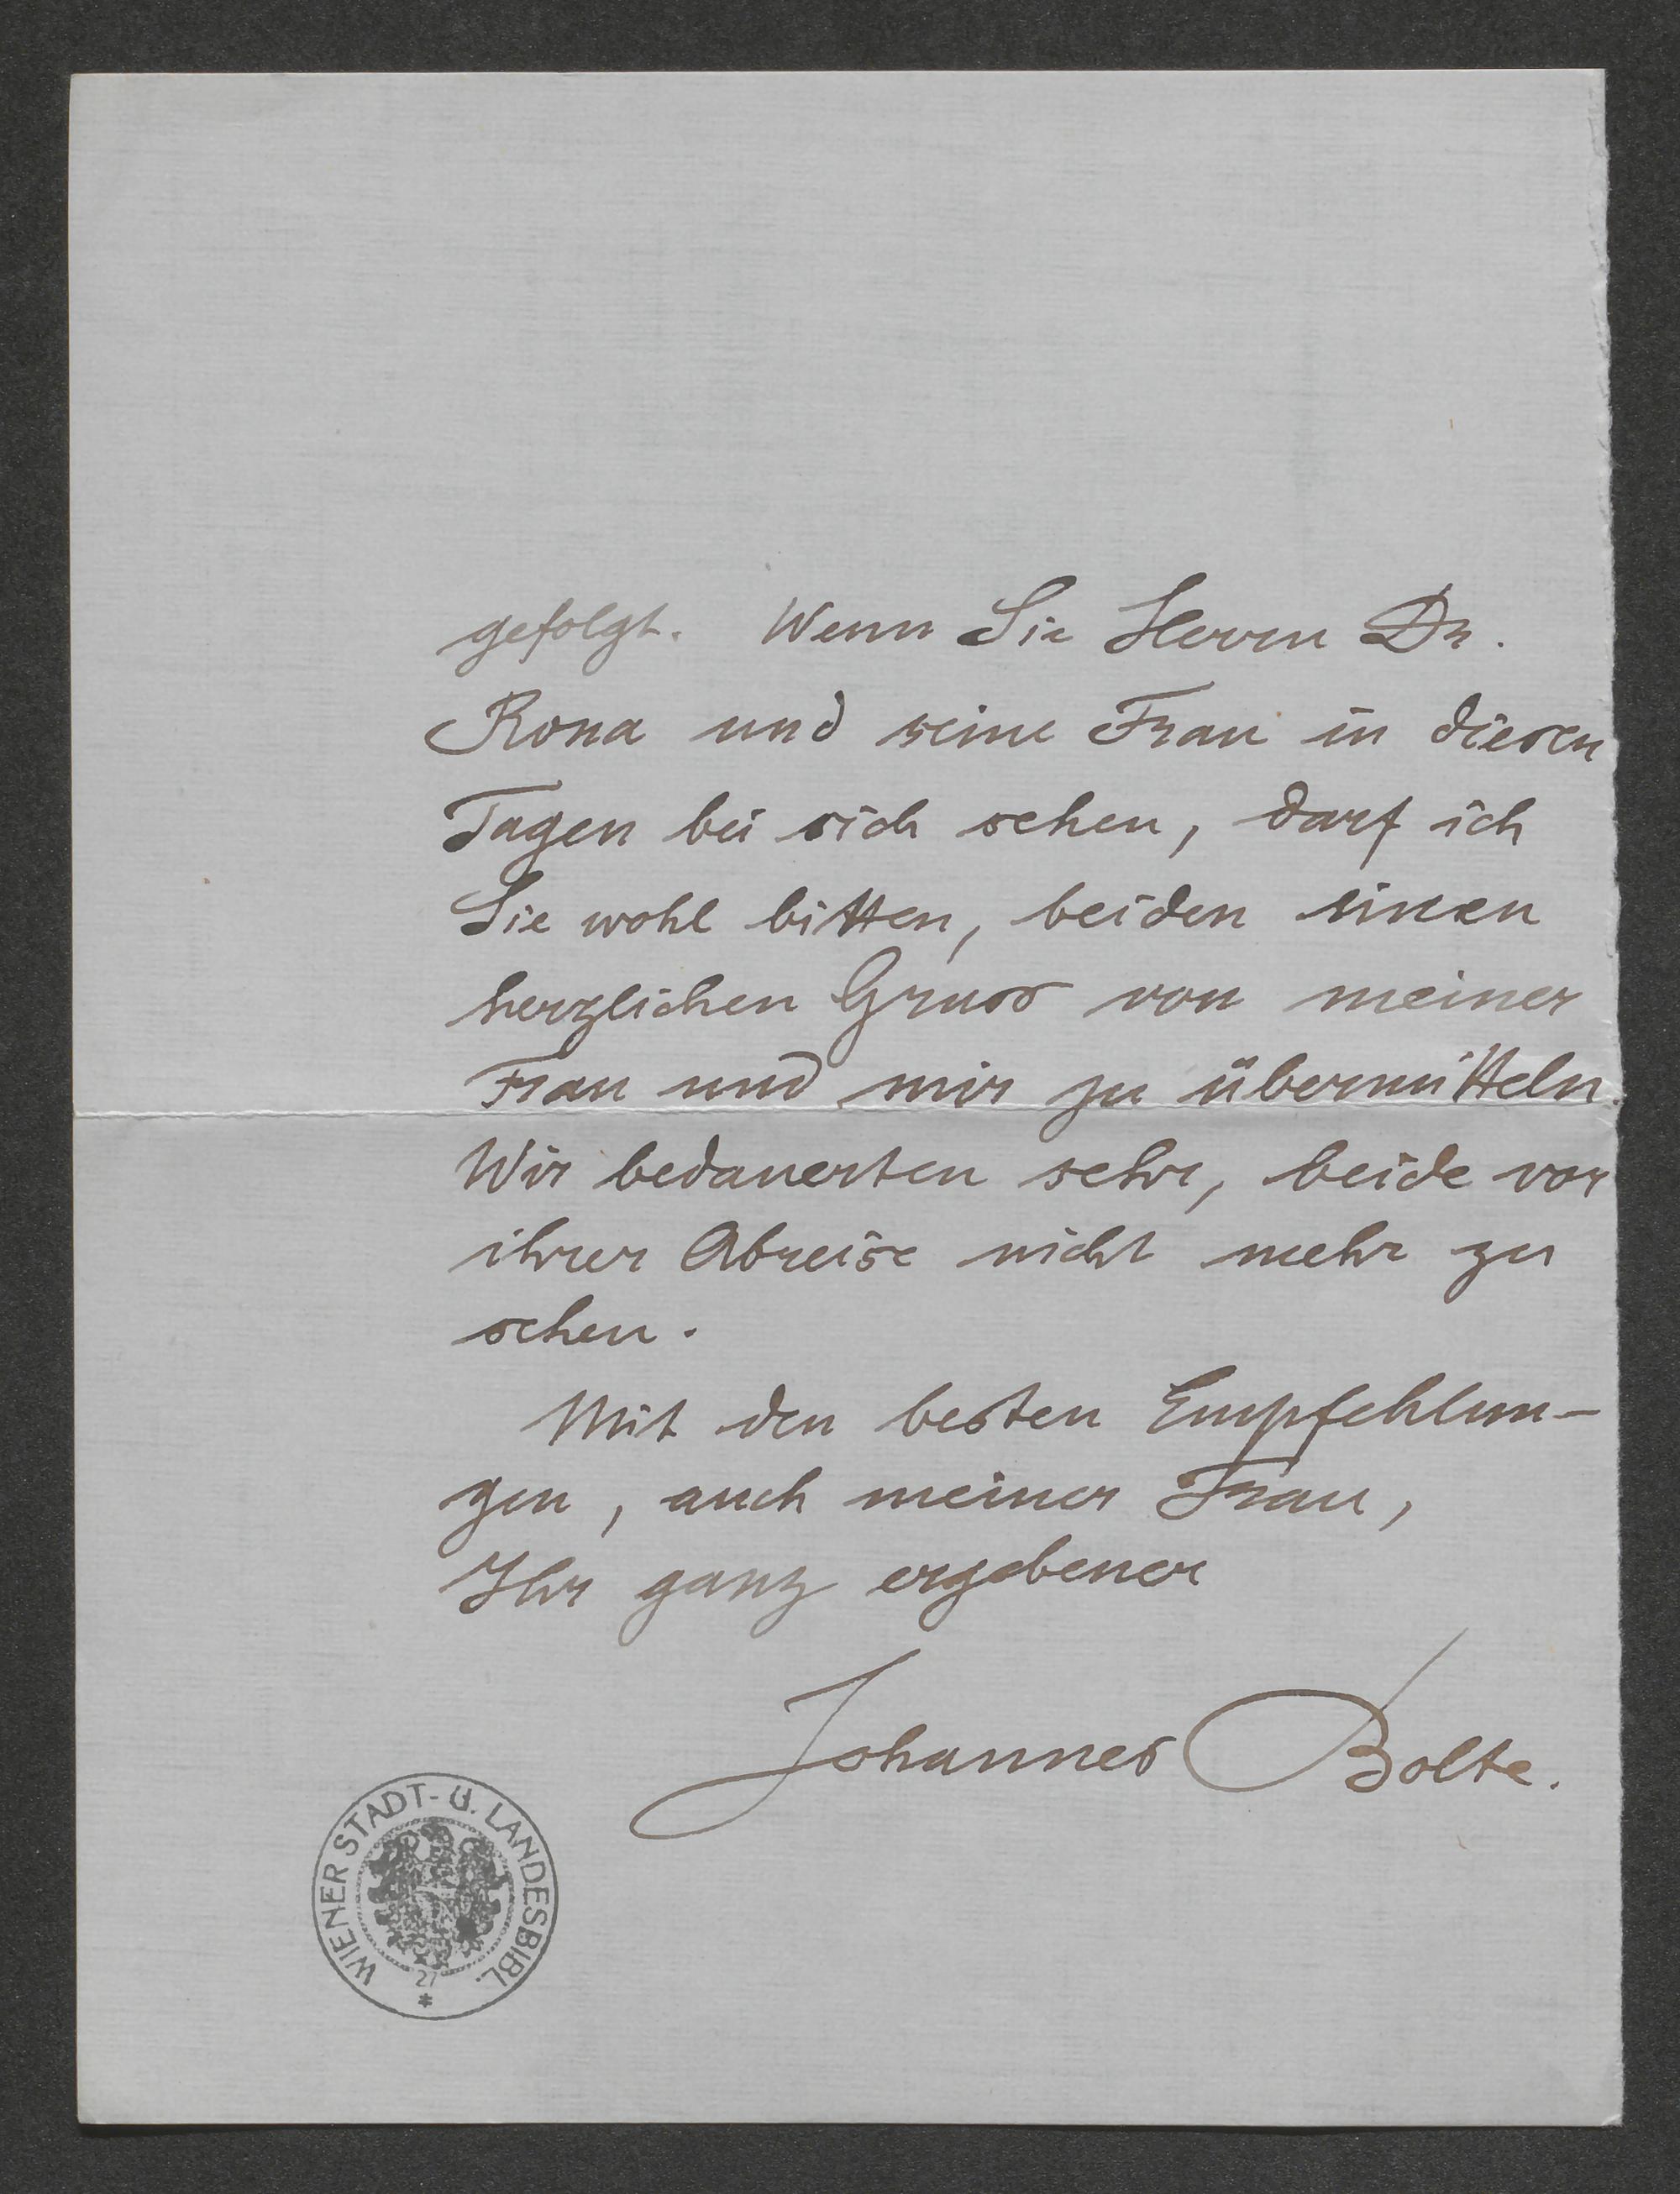 gefolgt. Wenn Sie Herrn Dr.
Rona und seine Frau in diesen
Tagen bei sich sehen, darf ich
Sie wohl bitten, beiden einen
herzlichen Gruss von meiner
Frau und mir zu übermitteln.
Wir bedauerten sehr, beide vor
ihrer Abreise nicht mehr zu
sehen.
Mit den besten Empfehlun-
gen, auch meiner Frau,
Ihr ganz ergebener
Johannes Bolte.
WIENER STADT- U. LANDESBIBL.
27
*